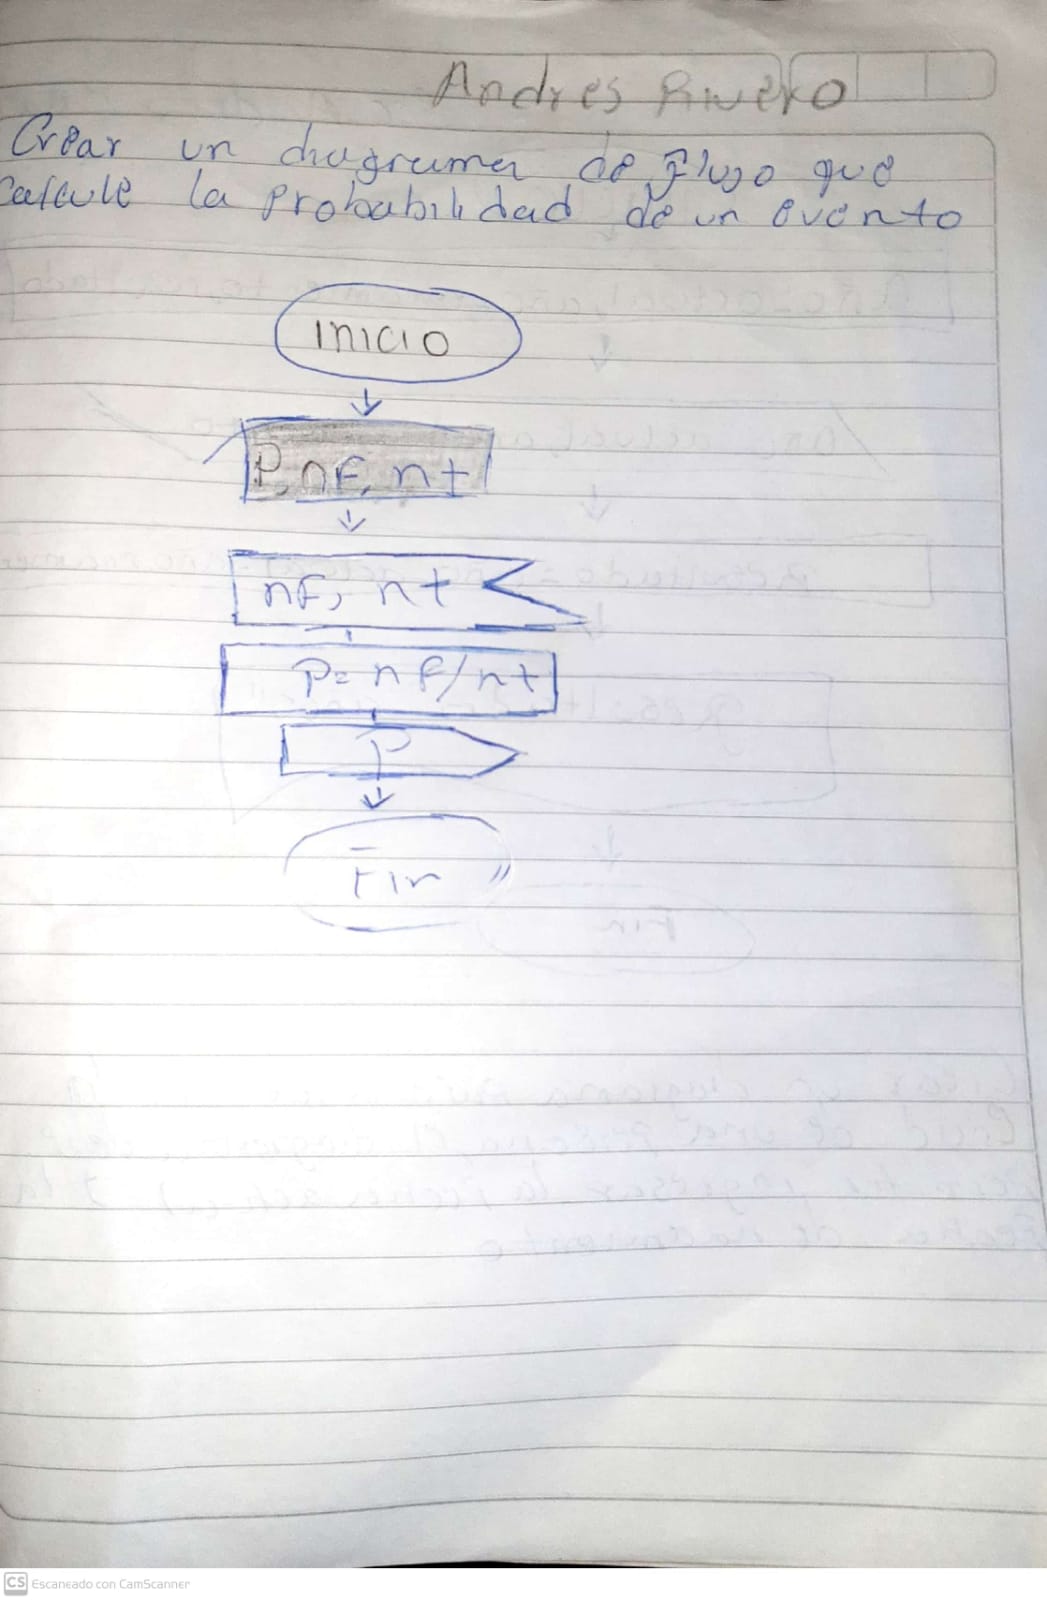 Andres Rivero
Crear un diagrama de Flujo que
calcule la Probabilidad de un evento
inicio
P, nF, nt
nF, nt
P= nf/nt
P
Fin
CS Escaneado con CamScanner